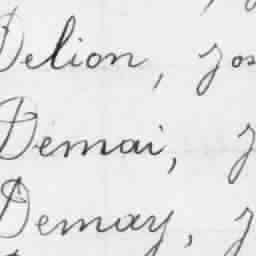 Delion, Jos
Demai, J
Demay, J